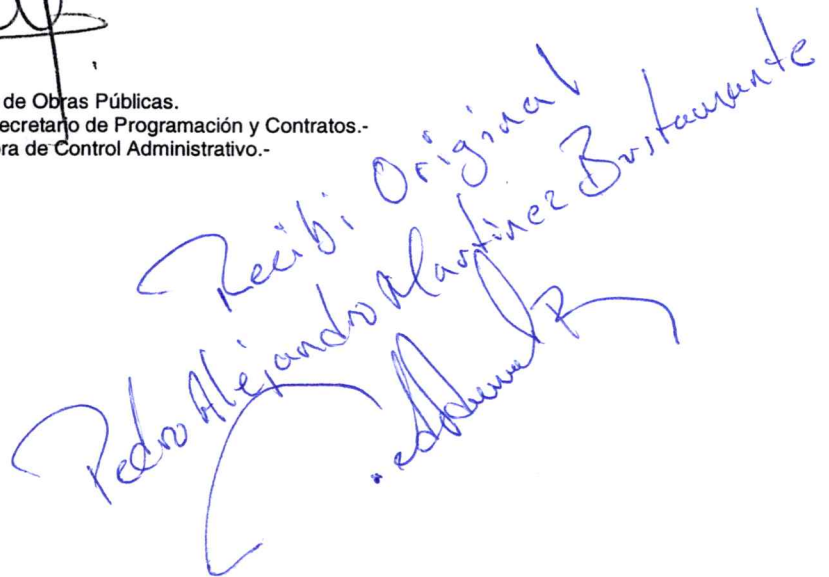 de Obras Públicas.
ecretario de Programación y Contratos.-
ra de Control Administrativo.-
Recibi Original
Pedro Alejandro Martinez Bustamante